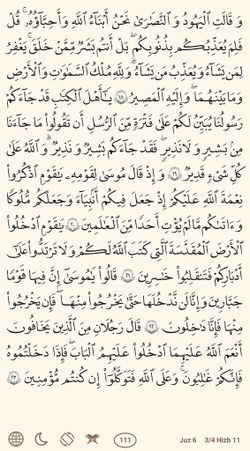 وَقَالَتِ ٱلْيَهُودُ وَٱلنَّصَٰرَىٰ نَحْنُ أَبْنَٰٓؤُا۟ ٱللَّهِ وَأَحِبَّٰٓؤُهُۥ ۚ قُلْ
فَلِمَ يُعَذِّبُكُم بِذُنُوبِكُم ۖ بَلْ أَنتُم بَشَرٌ مِّمَّنْ خَلَقَ ۚ يَغْفِرُ
لِمَن يَشَآءُ وَيُعَذِّبُ مَن يَشَآءُ ۚ وَلِلَّهِ مُلْكُ ٱلسَّمَٰوَٰتِ وَٱلْأَرْضِ
وَمَا بَيْنَهُمَا ۖ وَإِلَيْهِ ٱلْمَصِيرُ ١٨ يَٰٓأَهْلَ ٱلْكِتَٰبِ قَدْ جَآءَكُمْ
رَسُولُنَا يُبَيِّنُ لَكُمْ عَلَىٰ فَتْرَةٍ مِّنَ ٱلرُّسُلِ أَن تَقُولُوا۟ مَا جَآءَنَا
مِنۢ بَشِيرٍ وَلَا نَذِيرٍ ۖ فَقَدْ جَآءَكُم بَشِيرٌ وَنَذِيرٌ ۗ وَٱللَّهُ عَلَىٰ
كُلِّ شَىْءٍ قَدِيرٌ ١٩ وَإِذْ قَالَ مُوسَىٰ لِقَوْمِهِۦ يَٰقَوْمِ ٱذْكُرُوا۟
نِعْمَةَ ٱللَّهِ عَلَيْكُمْ إِذْ جَعَلَ فِيكُمْ أَنۢبِيَآءَ وَجَعَلَكُم مُّلُوكًا
وَءَاتَىٰكُم مَّا لَمْ يُؤْتِ أَحَدًا مِّنَ ٱلْعَٰلَمِينَ ٢٠ يَٰقَوْمِ ٱدْخُلُوا۟
ٱلْأَرْضَ ٱلْمُقَدَّسَةَ ٱلَّتِى كَتَبَ ٱللَّهُ لَكُمْ وَلَا تَرْتَدُّوا۟ عَلَىٰٓ
أَدْبَارِكُمْ فَتَنقَلِبُوا۟ خَٰسِرِينَ ٢١ قَالُوا۟ يَٰمُوسَىٰٓ إِنَّ فِيهَا قَوْمًا
جَبَّارِينَ وَإِنَّا لَن نَّدْخُلَهَا حَتَّىٰ يَخْرُجُوا۟ مِنْهَا فَإِن يَخْرُجُوا۟
مِنْهَا فَإِنَّا دَٰخِلُونَ ٢٢ قَالَ رَجُلَانِ مِنَ ٱلَّذِينَ يَخَافُونَ
أَنْعَمَ ٱللَّهُ عَلَيْهِمَا ٱدْخُلُوا۟ عَلَيْهِمُ ٱلْبَابَ فَإِذَا دَخَلْتُمُوهُ
فَإِنَّكُمْ غَٰلِبُونَ ۚ وَعَلَى ٱللَّهِ فَتَوَكَّلُوٓا۟ إِن كُنتُم مُّؤْمِنِينَ ٢٣
111 Juz 6 3/4 Hizb 11